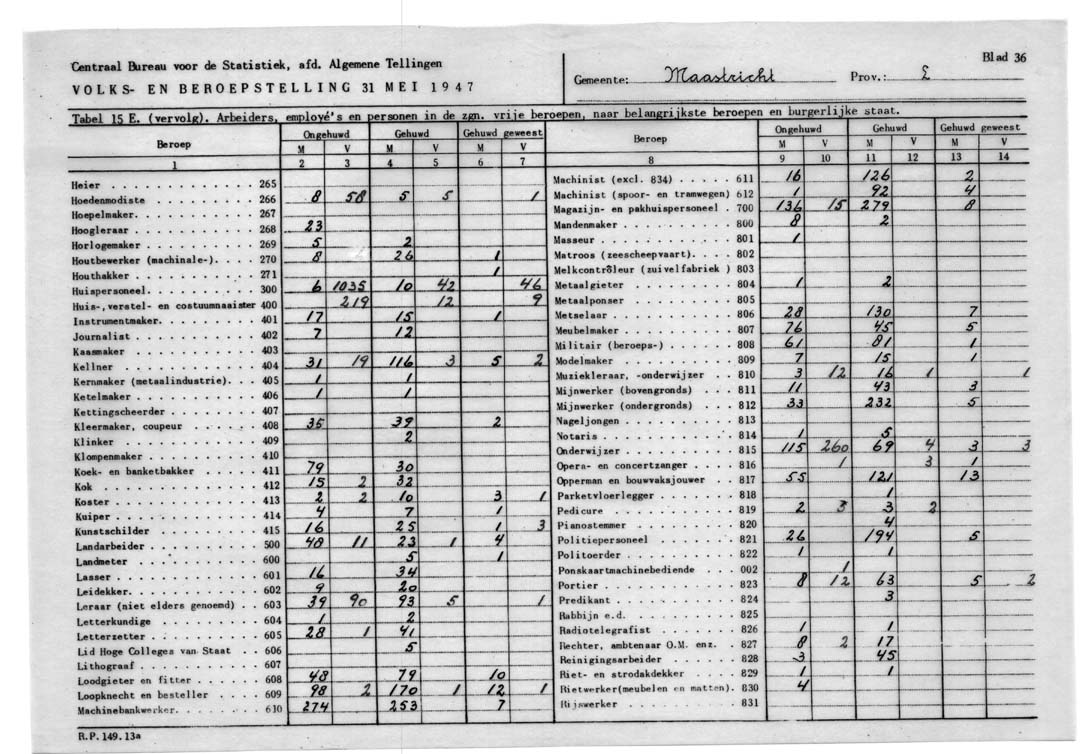 Centraal Bureau voor de Statistiek, afd. Algemene Tellingen
VOLKS- EN BEROEPSTELLING 31 MEI 1947
Gemeente: Maastricht Prov.: L
Blad 36
Tabel 15 E. (vervolg). Arbeiders, employé's en personen in de zgn. vrije beroepen, naar belangrijkste beroepen en burgerlijke staat.
Beroep Ongehuwd Gehuwd Gehuwd geweest
M V M V M V
1 2 3 4 5 6 7
Heier 265
Hoedenmodiste 266 8 58 5 5 1
Hoepelmaker 267
Hoogleraar 268 23
Horlogemaker 269 5 2
Houtbewerker (machinale-) 270 8 26 1
Houthakker 271 1
Huispersoneel 300 6 1035 10 42 46
Huis-, verstel- en costuumnaaister 400 219 12 9
Instrumentmaker 401 17 15 1
Journalist 402 7 12
Kaasmaker 403
Kellner 404 31 19 116 3 5 2
Kernmaker (metaalindustrie) 405 1 1
Ketelmaker 406 1 1
Kettingscheerder 407
Kleermaker, coupeur 408 35 39 2
Klinker 409 2
Klompenmaker 410
Koek- en banketbakker 411 79 30
Kok 412 15 2 32
Koster 413 2 2 10 3 1
Kuiper 414 4 7 1
Kunstschilder 415 16 25 1 3
Landarbeider 500 48 11 23 1 4
Landmeter 600 5 1
Lasser 601 16 34
Leidekker 602 9 20
Leraar (niet elders genoemd) 603 39 90 93 5 1
Letterkundige 604 1 2
Letterzetter 605 28 1 41
Lid Hoge Colleges van Staat 606 5
Lithograaf 607
Loodgieter en fitter 608 48 79 10
Loopknecht en besteller 609 98 2 170 1 12 1
Machinebankwerker 610 274 253 7
R.P. 149.13a
Beroep Ongehuwd Gehuwd Gehuwd geweest
M V M V M V
8 9 10 11 12 13 14
Machinist (excl. 834) 611 16 126 2
Machinist (spoor- en tramwegen) 612 1 92 4
Magazijn- en pakhuispersoneel 700 136 15 279 8
Mandenmaker 800 8 2
Masseur 801 1
Matroos (zeescheepvaart) 802
Melkcontrôleur (zuivelfabriek) 803
Metaalgieter 804 1 2
Metaalponser 805
Metselaar 806 28 130 7
Meubelmaker 807 76 45 5
Militair (beroeps-) 808 61 81 1
Modelmaker 809 7 15 1
Muziekleraar, -onderwijzer 810 3 12 16 1 1
Mijnwerker (bovengronds) 811 11 43 3
Mijnwerker (ondergronds) 812 33 232 5
Nageljongen 813
Notaris 814 1 5
Onderwijzer 815 115 260 69 4 3 3
Opera- en concertzanger 816 1 3 1
Opperman en bouwvaksjouwer 817 55 121 13
Parketvloerlegger 818 1
Pedicure 819 2 3 3 2
Pianostemmer 820 4
Politiepersoneel 821 26 194 5
Politoerder 822 1 1
Ponskaartmachinebediende 002 1
Portier 823 8 12 63 5 2
Predikant 824 3
Rabbijn e.d. 825
Radiotelegrafist 826 1 1
Rechter, ambtenaar O.M. enz. 827 8 2 17
Reinigingsarbeider 828 3 45
Riet- en strodakdekker 829 1 1
Rietwerker(meubelen en matten) 830 4
Rijswerker 831